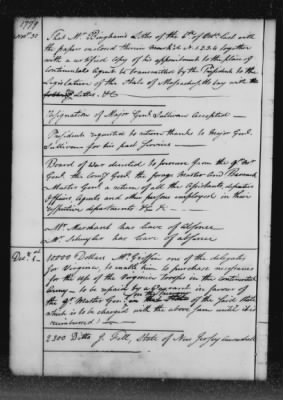 1779
Novr. 30
That Mr. Bingham's Letter of the 1st of Octr. last with
the papers enclosed therein marked No. 1.2.3.4 together
with a certified copy of his appointment to the place of
Continental Agent be transmitted by the President to the
Legislature of the State of Massachts. bay with the
Letter &c
Resignation of Major Genl. Sullivan Accepted —
President requested to return thanks to Major Genl.
Sullivan for his past Services —
Board of War directed to procure from the Qr. Mr.
Genl. the Comy. Genl. the forage Master and Barrack
Master Genl. a return of all the Assistants, deputies
Officers, Agents and other persons employed in their
respective departments &c &c —
Mr. Marchant has leave of absence
Mr. Schuyler has leave of absence
Decr. 1st
10000 Dollars Mr. Griffin one of the delegates
for Virginia, to enable him to purchase necessaries
for the use of the Virginia troops in the continental
Army — to be repaid by a Warrant in favour of
the Qr. Master Genl. on the Treasury of the said State
which is to be charged with the above sum until it is
reimbursed —
2300 Ditto J. Fell, State of New Jersey accountable